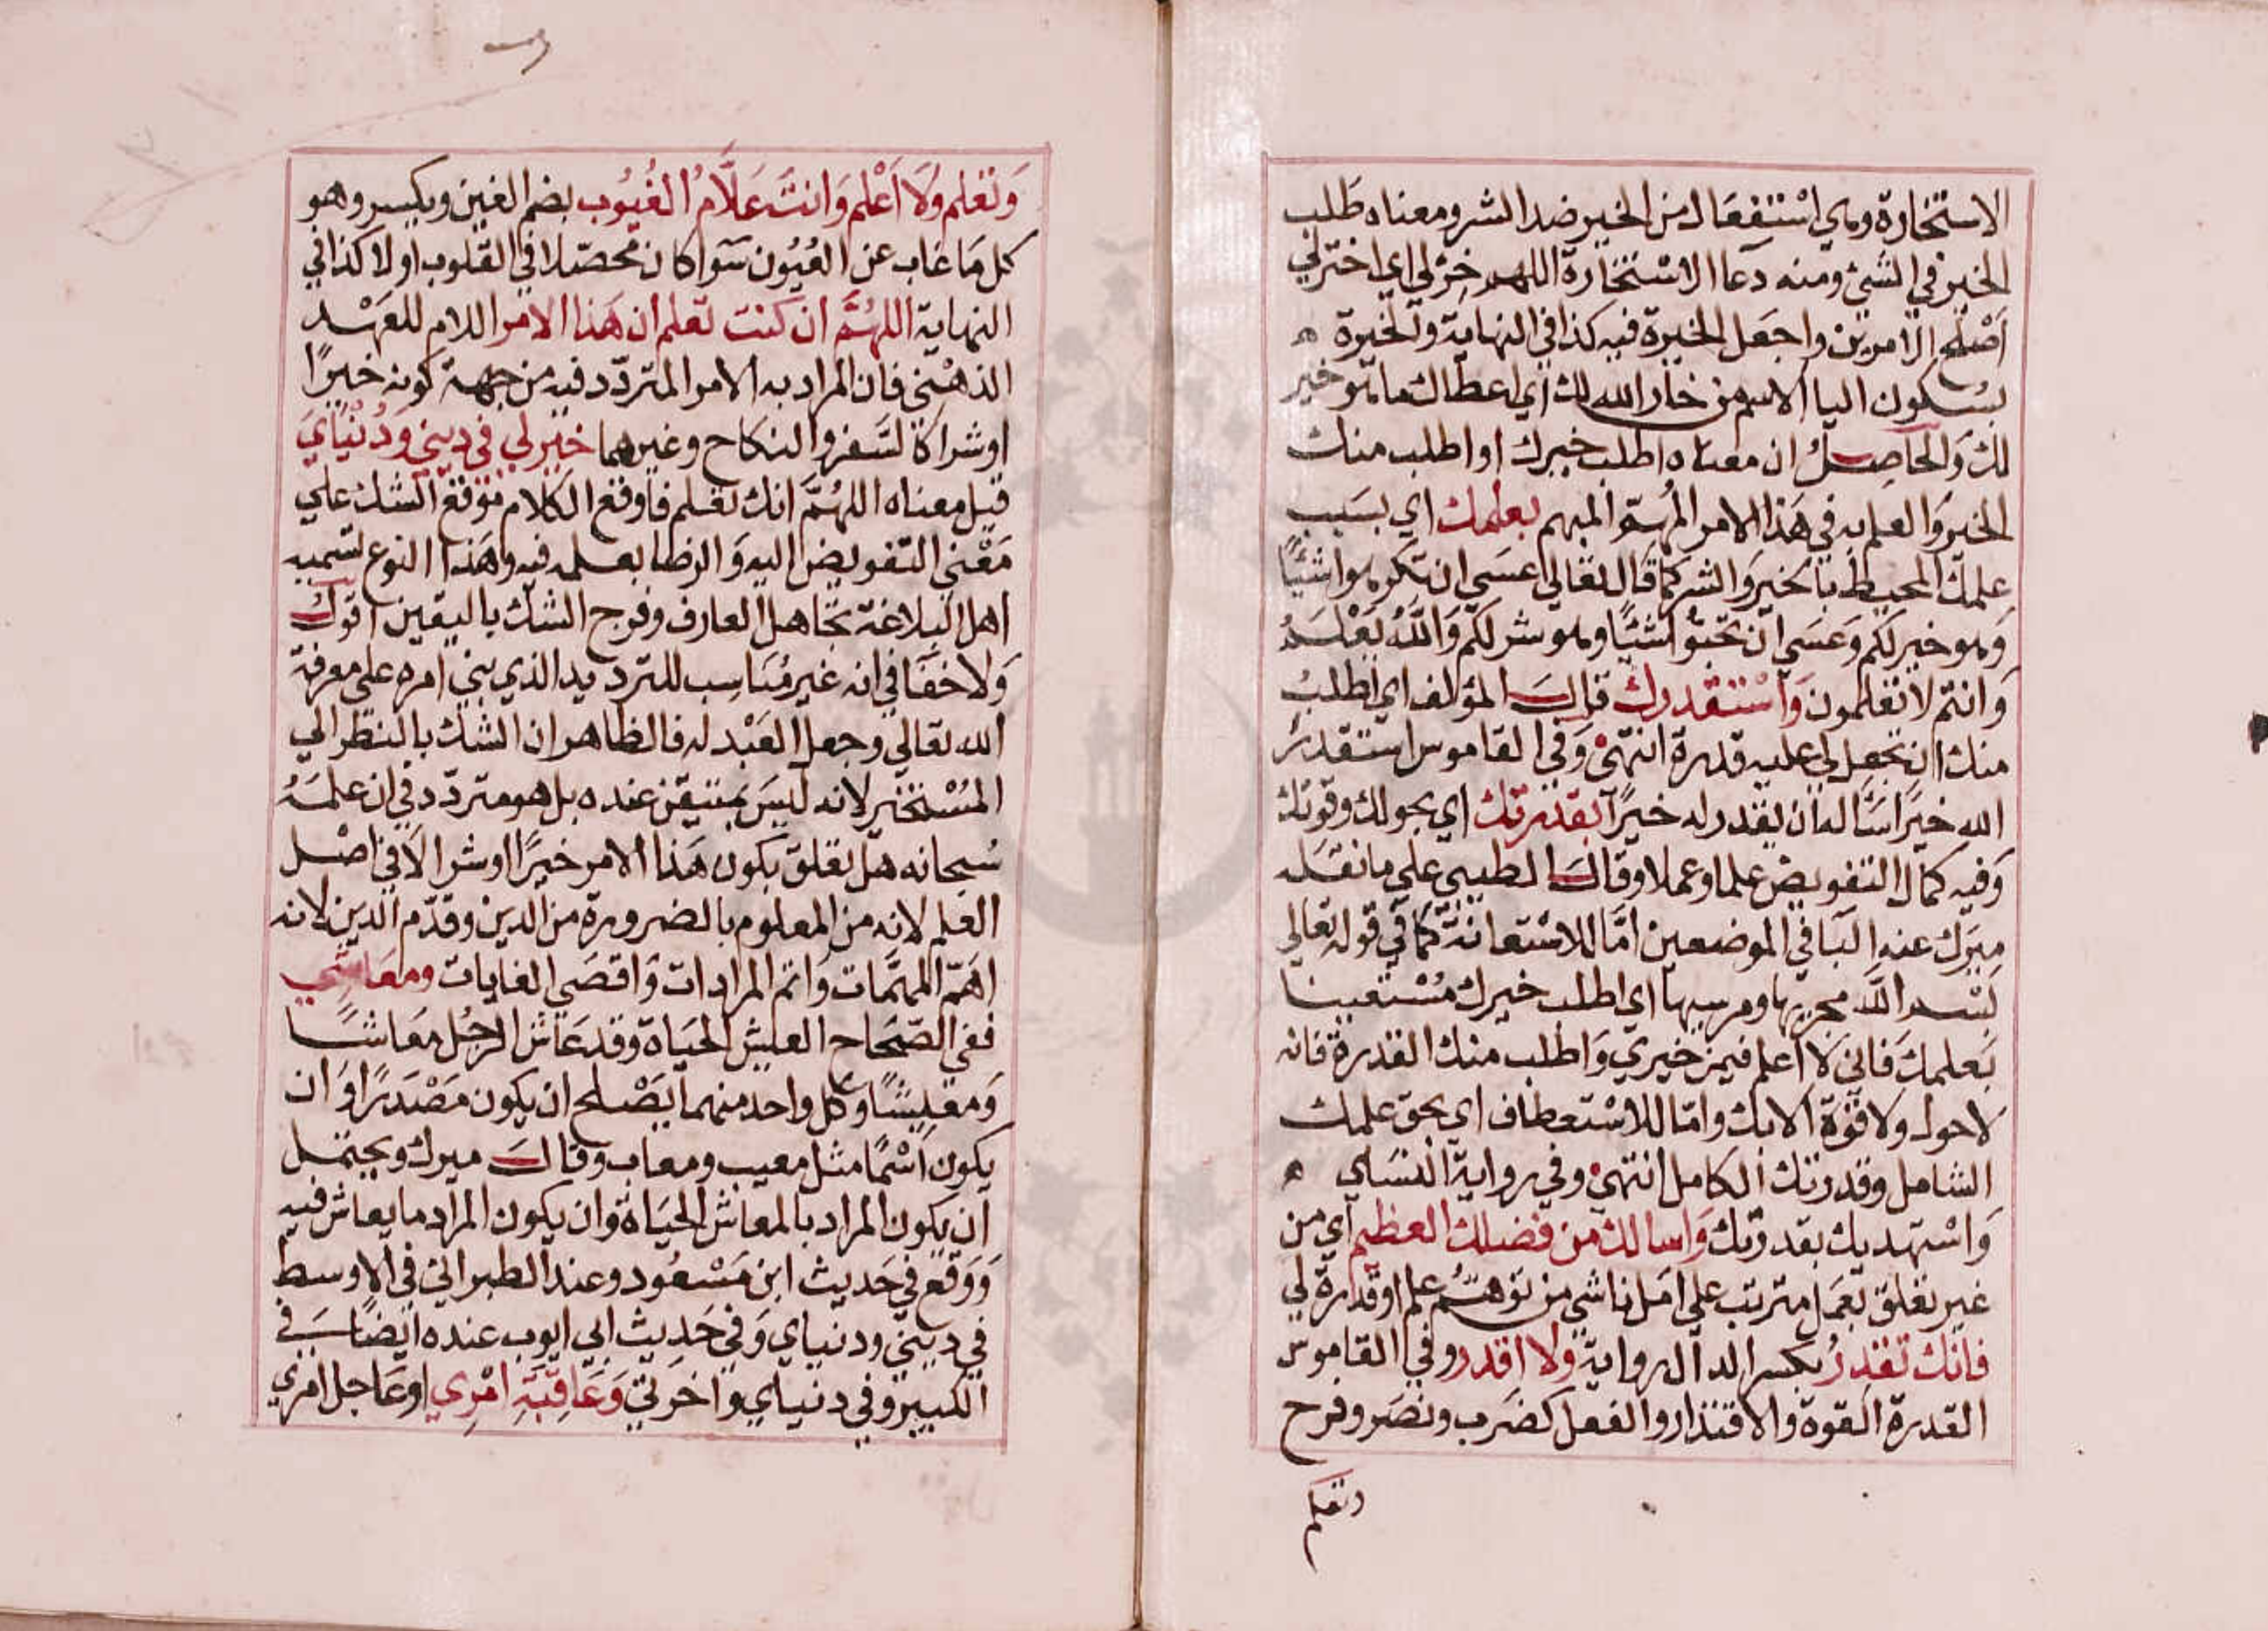 الاستخارة وهي استفعال من الخير ضد الشر ومعناه طلب
الخير في الشئ ومنه دعا الاستخارة اللهم خر لي اي اختر لي
اصلح الامرين واجعل الخيرة فيه كذا في النهاية والخيرة ه
بسكون اليا الاسم من خار الله لك اي اعطاك ما هو خير
لك والحاصل ان معناه اطلب خيرك او اطلب منك
الخير والعلم به في هذا الامر المبهم بعلمك اي بسبب
علمك المحيط بالخير والشر كما قال تعالي عسي ان تكرهوا شئيًا
وهو خير لكم وعسي ان تحبوا شئيًا وهو شر لكم والله يعلم
وانتم لا تعلمون واستقدرك قال المؤلف اي اطلب
منك ان تجعل لي عليه قدرة انتهي وفي القاموس استقدر
الله خيرا سأله ان يقدر له خيرًا بقدرتك اي بحولك وقوتك
وفيه كمال التفويض علما وعملا وقال الطيبي علي ما نقله
ميرك عنه البا في الموضعين امّا للاستعانة كما في قوله تعالي
بسم الله مجريها ومرسيها اي اطلب خيرك مستعينا
بعلمك فاني لا اعلم فيمن خيري واطلب منك القدرة فانه
لا حول ولا قوة الا بك واما للاستعطاف اي بحق علمك
الشامل وقدرتك الكامل انتهي وفي رواية النسائي ه
واستهديك بقدرتك واسالك من فضلك العظيم اي من
غير تعلق بعمل مترتب علي امل ناشي من توهم علم او قدرة لي
فانك تقدر بكسر الدال رواية ولا اقدر وفي القاموس
القدرة القوة والاقتدار والفعل كضرب ونصر وفرح
وتعلم
وتعلم ولا اعلم وانت علّام الغيوب بضم الغين ويكسر وهو
كل ما غاب عن العيون سوا كان محصّلا في القلوب او لا كذا في
النهاية اللهم ان كنت تعلم ان هذا الامر اللام للعهد
الذهني فان المراد به الامر المتردّد فيه من جهة كونه خيرًا
او شرا كالسفر والنكاح وغيرهما خير لي في ديني ودنياي
قيل معناه اللهم انك تعلم فاوقع الكلام موقع الشك علي
معني التفويض اليه والرضا بعلمه فيه وهذا النوع تسميه
اهل البلاغة تجاهل العارف وفرج الشك باليقين اقول
ولا خفا في انه غير مناسب للترديد الذي بني امره علي معرفة
الله تعالي وجعل العبد له فالظاهر ان الشك بالنظر الي
المستخير لانه ليس بمتيقن عنده بل هو متردّد في ان علمه
سبحانه هل تعلق بكون هذا الامر خيرًا او شرا لا في اصل
العلم لانه من المعلوم بالضرورة من الدين وقدّم الدين لانه
اهمّ المهمّات واتم المرادات واقصي الغايات ومعاشي
ففي الصّحاح العيش الحياة وقد عاش الرجل معاشًا
ومعيشًا وكل واحد منهما يصلح ان يكون مصدرًا وان
يكون اسمًا مثل معيب ومعاب وقال ميرك ويحتمل
ان يكون المراد بالمعاش الحياة وان يكون المراد ما يعاش فيه
ووقع في حديث ابن مسعود وعند الطبراني في الاوسط
في ديني ودنياي وفي حديث ابي ايوب عنده ايضًا في
الكبير وفي دنياي واخرتي وعاقبة امري او عاجل امري